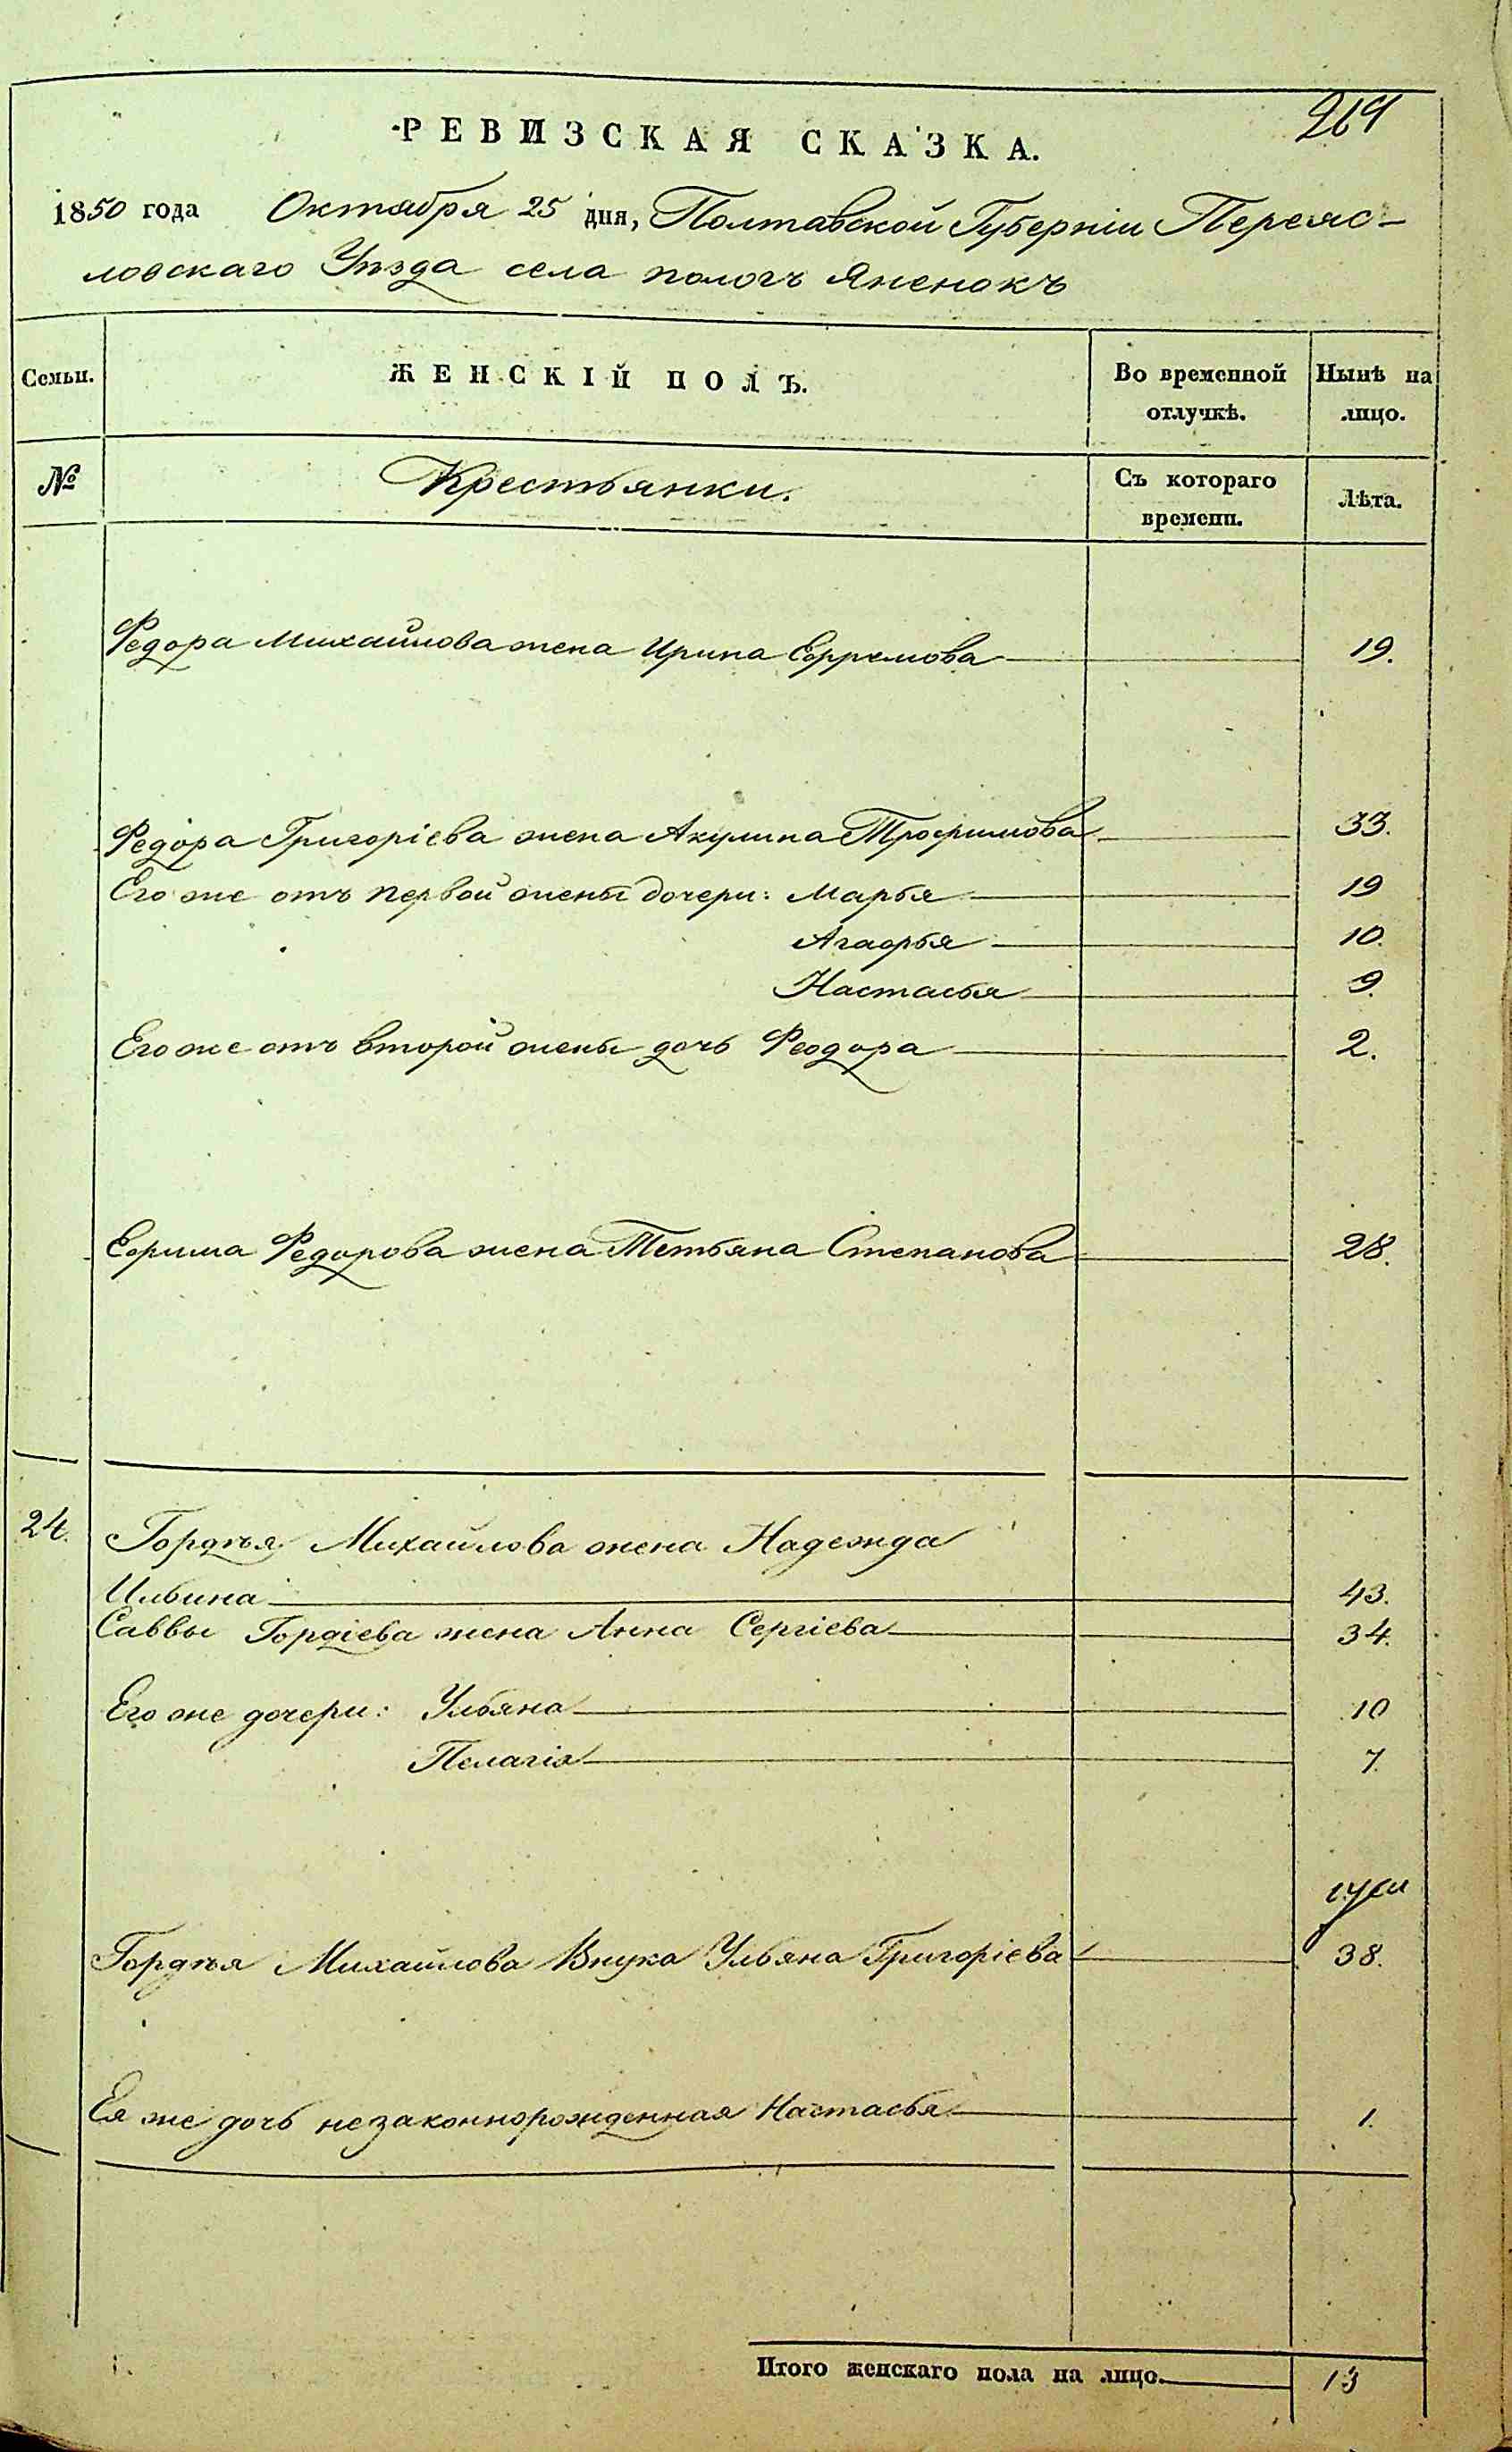 264
РЕВИЗСКАЯ СКАЗКА.
1850 года Октября 25 дня, Полтавской Губерніи Переяс-
ловскаго Уѣзда села пологъ Яненокъ
Семьи. ЖЕНСКІЙ ПОЛЪ. Во временной отлучкѣ. Нынѣ на лицо.
№ Крестьянки. Съ котораго времени. Лѣта.
Федора Михайлова жена Ирина Ефремова 19.
Федора Григоріева жена Акулина Трофимова 33.
Его же отъ первой жены дочери: Марья 19
Агафья 10.
Настасья 9.
Его же отъ второй жены дочь Феодора 2.
Ефима Федорова жена Тетьяна Степанова 28.
24. Гордѣя Михайлова жена Надежда
Ильина 43.
Саввы Гордіева жена Анна Сергіева 34.
Его же дочери: Ульяна 10
Пелагія 7.
Гордѣя Михайлова Внука Ульяна Григоріева 38.
Ея же дочь незаконнорожденная Настасья 1.
Итого женскаго пола на лицо. 13